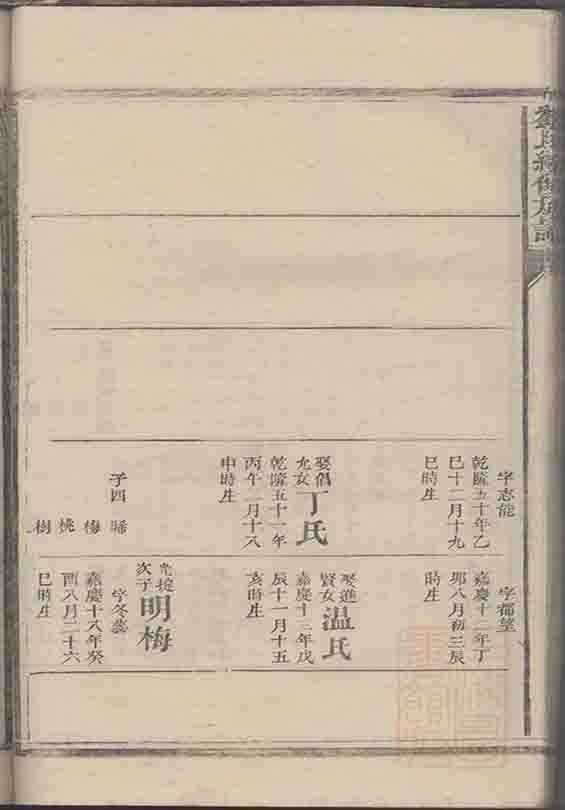 劉氏續修族譜
字志能
乾隆五十年乙
巳十二月十九
巳時生
娶倡
允女
丁氏
乾隆五十一年
丙午二月十八
申時生
子四
梅
桃
樹
字都望
嘉慶十二年丁
卯八月初三辰
時生
娶進
賢女
溫氏
嘉慶十三年戊
辰十一月十五
亥時生
次子
明梅
字冬蕊
嘉慶十八年癸
酉八月二十六
巳時生